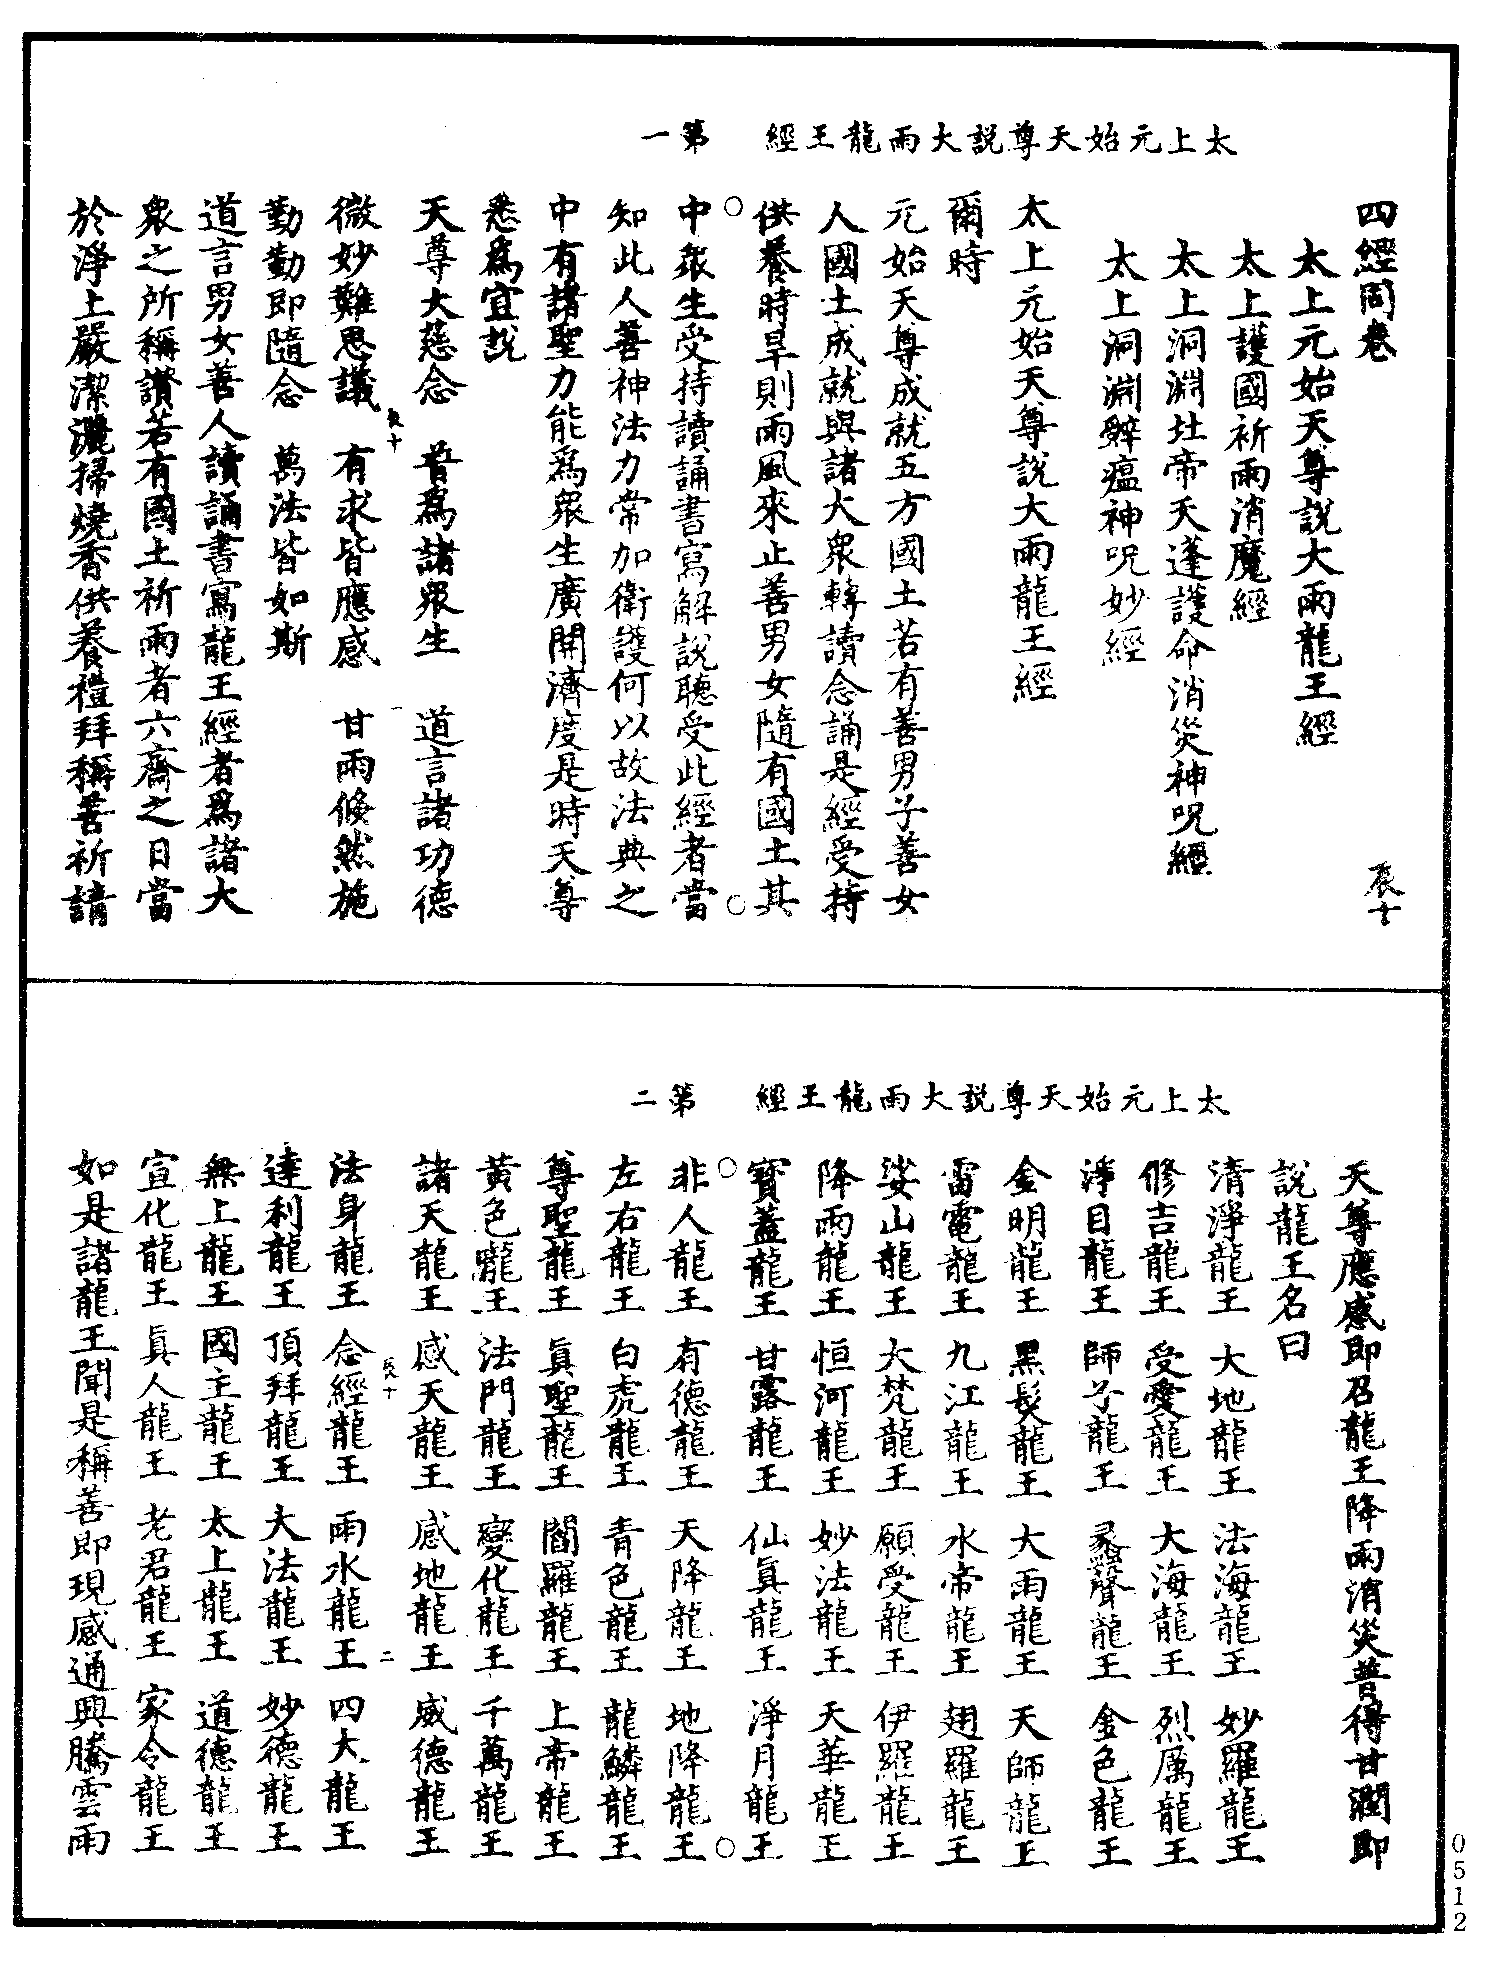 太上元始天尊說大雨龍王經　第一
四經同卷　辰十
太上元始天尊說大雨龍王經
太上護國祈雨消魔經
太上洞淵北帝天蓬護命消災神呪經
太上洞淵辭瘟神呪妙經
太上元始天尊說大雨龍王經
爾時
元始天尊成就五方國土若有善男子善女
人國土成就與諸大衆轉讀念誦是經受持
供養時旱則雨風來止善男女隨有國土其
中衆生受持讀誦書寫解說聽受此經者當
知此人善神法力常加衛護何以故法典之
中有諸聖力能爲衆生廣開濟度是時天尊
悉爲宣說
天尊大慈念　普爲諸衆生　道言諸功德
微妙難思議　有求皆應感　甘雨倏然施
勤勤即隨念　萬法皆如斯
辰十　一
道言男女善人讀誦書寫龍王經者爲諸大
衆之所稱讚若有國土祈雨者六齋之日當
於淨土嚴潔灑掃燒香供養禮拜稱善祈請
太上元始天尊說大雨龍王經　第二
天尊應感即召龍王降雨消災普得甘潤即
說龍王名曰
清淨龍王　大地龍王　法海龍王　妙羅龍王
修吉龍王　受愛龍王　大海龍王　烈厲龍王
淨目龍王　師子龍王　鼕聲龍王　金色龍王
金明龍王　黑髮龍王　大雨龍王　天師龍王
雷電龍王　九江龍王　水帝龍王　翅羅龍王
娑山龍王　大梵龍王　願受龍王　伊羅龍王
降雨龍王　恒河龍王　妙法龍王　天華龍王
寶蓋龍王　甘露龍王　仙眞龍王　淨月龍王
非人龍王　有德龍王　天降龍王　地降龍王
左右龍王　白虎龍王　青色龍王　龍鱗龍王
尊聖龍王　眞聖龍王　閻羅龍王　上帝龍王
黃色龍王　法門龍王　變化龍王　千萬龍王
諸天龍王　感天龍王　感地龍王　威德龍王
辰十　二
法身龍王　念經龍王　雨水龍王　四大龍王
達利龍王　頂拜龍王　大法龍王　妙德龍王
無上龍王　國主龍王　太上龍王　道德龍王
宣化龍王　眞人龍王　老君龍王　家令龍王
如是諸龍王聞是稱善即現感通興騰雲雨
0512